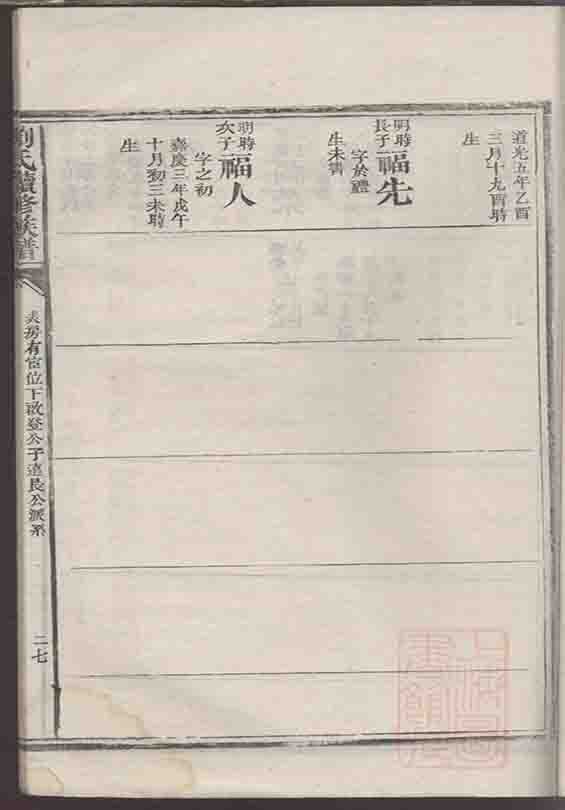 道光五年乙酉
三月十九酉時
生
明時
長子
福先
字於禮
生未書
明時
次子
福人
字之初
嘉慶三年戊午
十月初三未時
生
劉氏續修族譜
房有宦位下啟登公子遠良公派系
二七